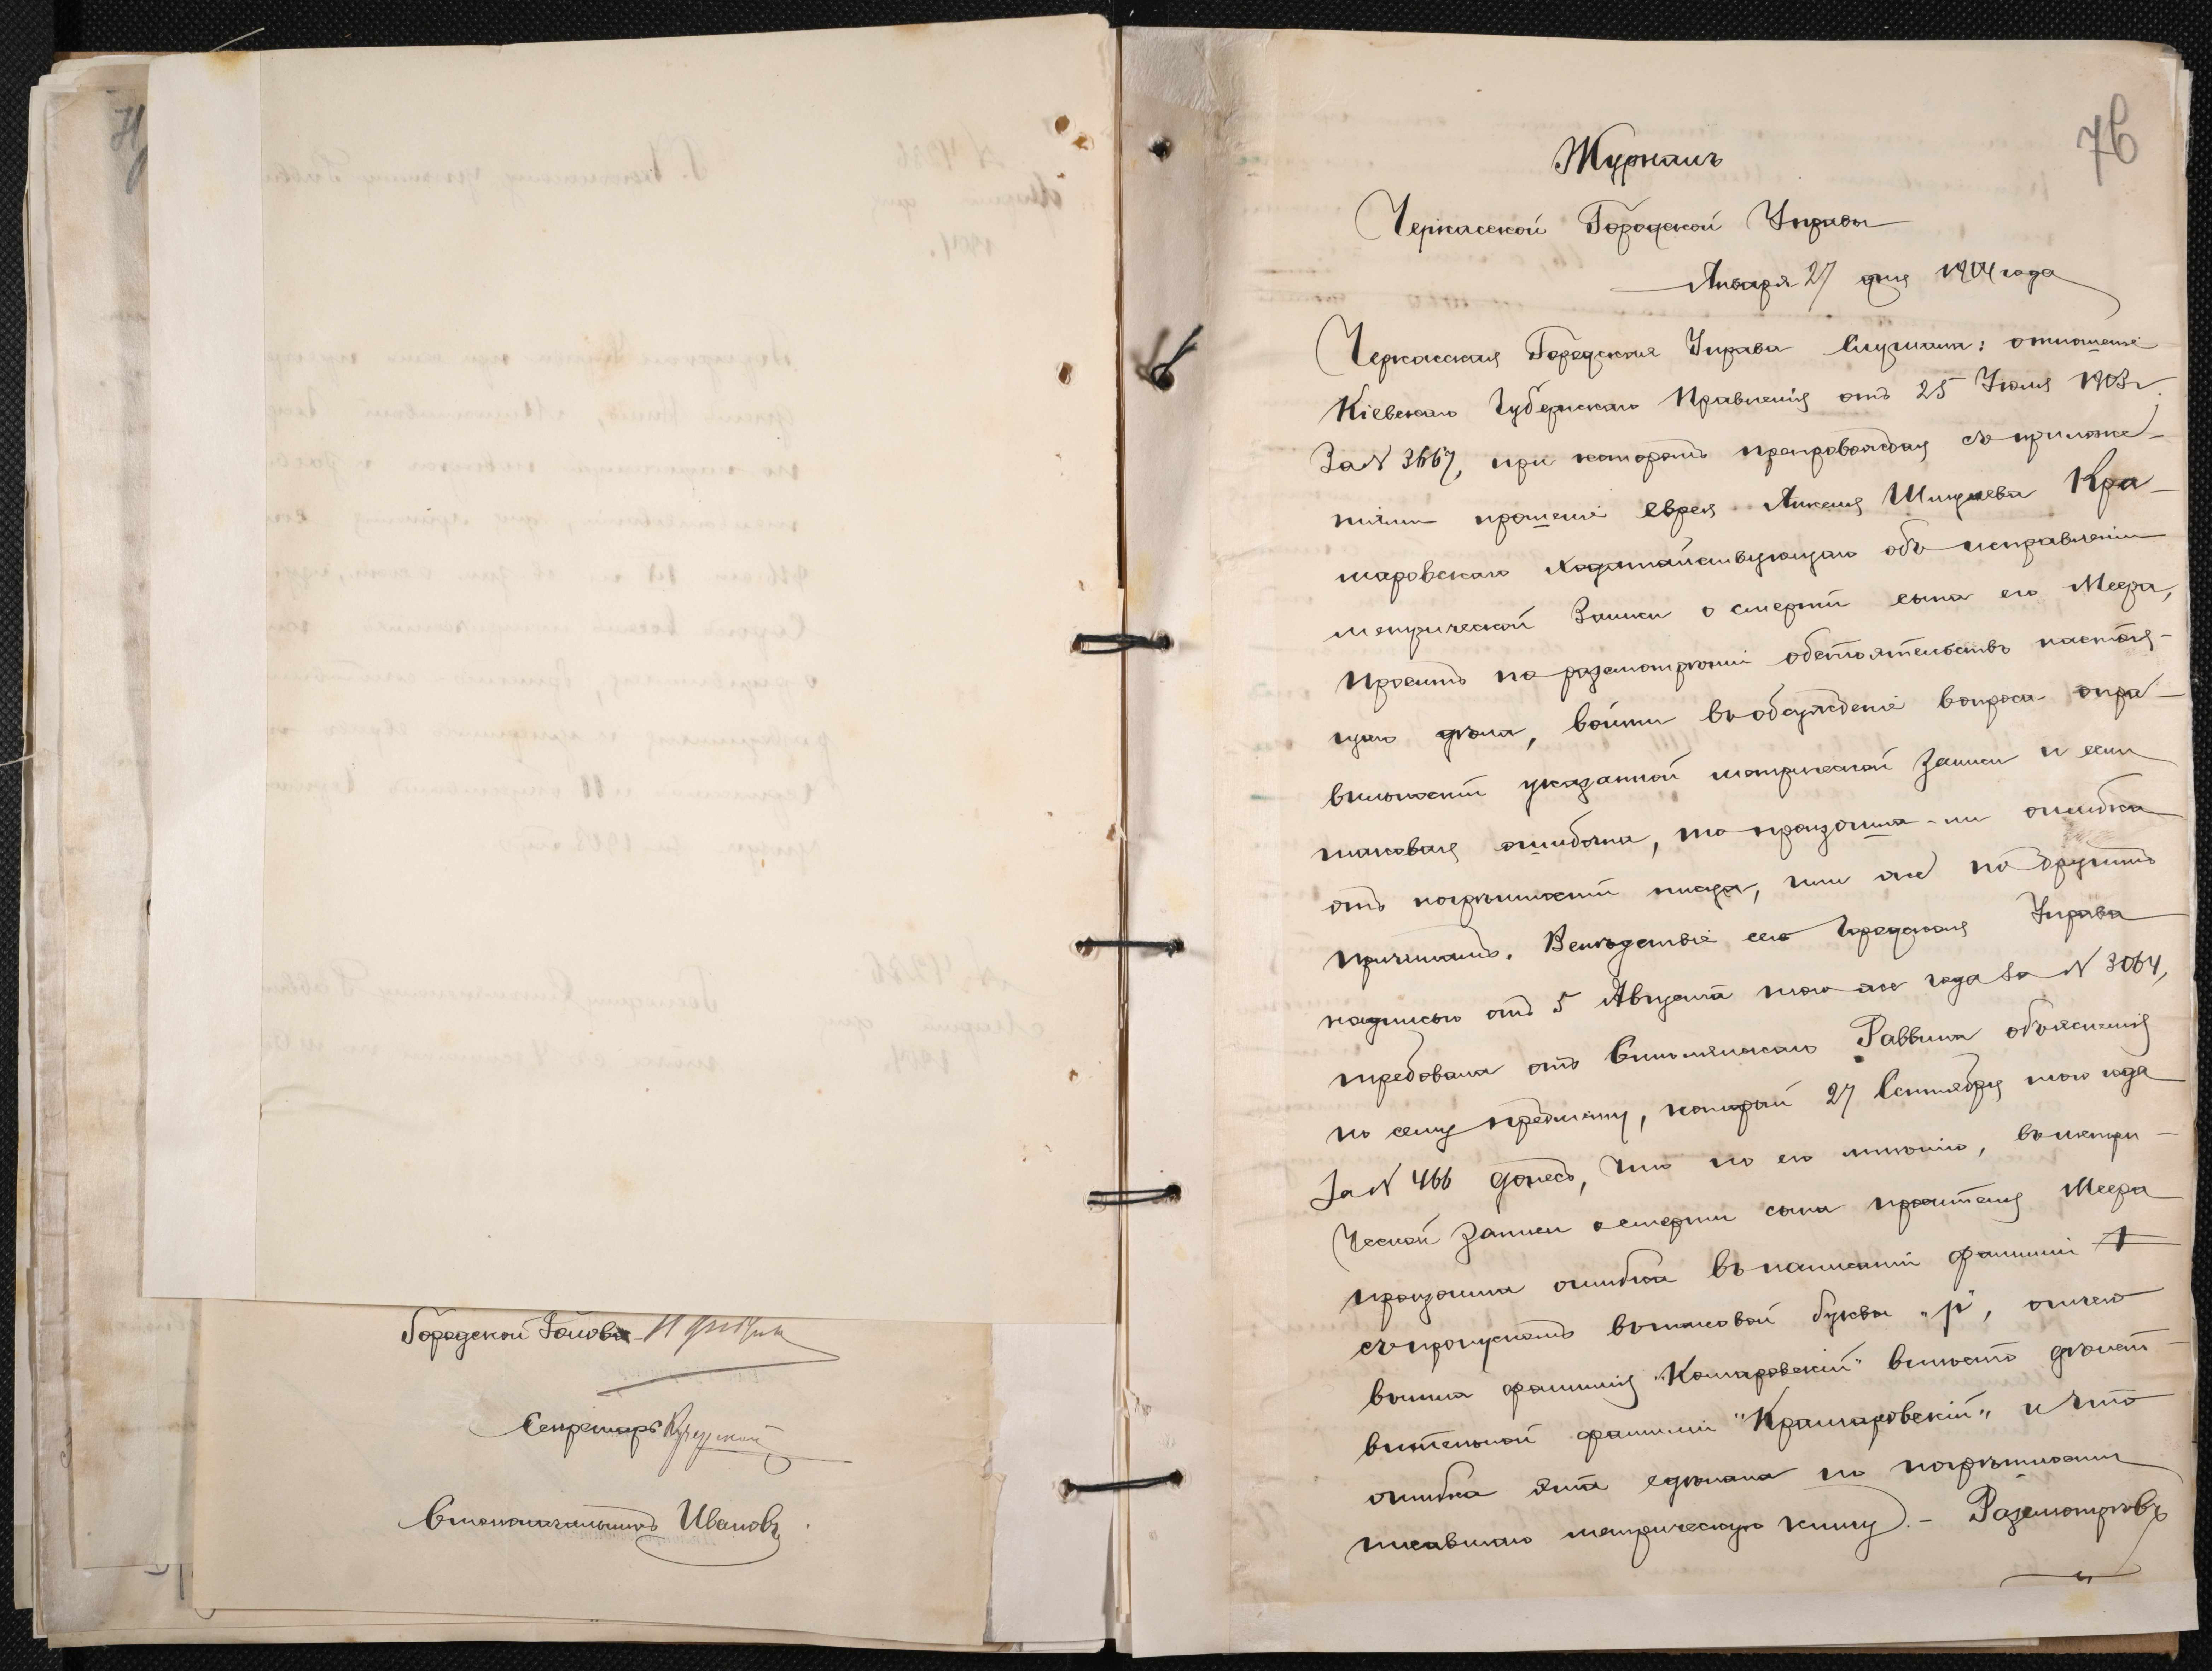 Городской Голова
Секретарь
Столоначальникъ Ивановъ
76
Журналъ
Черкасской Городской Управы
Января 27 дня 1904 года
Черкасская Городская Управа слушала: отношеніе
Кіевскаго Губернскаго Правленія отъ 25 Іюля 1903 г.
За № 3667, при которомъ препровождая съ приложе-
ніями прошеніе еврея Анкеля Шмулева Кра-
маровскаго ходатайствующаго объ исправленіи
метрической Записи о смерти сына его Меера,
проситъ по разсмотрѣніи обстоятельствъ настоя-
щаго дѣла, войти въ обсужденіе вопроса о пра-
вильности указанной метрической записи и если
таковая ошибочна, то произошла-ли ошибка
отъ погрѣшности писца, или же по другимъ
причинамъ. Вслѣдствіе сего Городская Управа
надписью отъ 5 Августа того же года за № 3064,
требовала отъ Смѣлянскаго Раввина объясненія
по сему предмету, который 27 Сентября того года
За № 466 донесъ, что по его мнѣнію, въ метри-
ческой записи о смерти сына просителя Меера
произошла ошибка въ написаніи фамиліи
съ пропускомъ въ таковой буквы „р", отчего
вышла фамилія „Комаровскій" вмѣсто дѣйст-
вительной фамиліи "Крамаровскій" и что
ошибка эта сдѣлана по погрѣшности
писавшаго метрическую книгу. - Разсмотрѣвъ